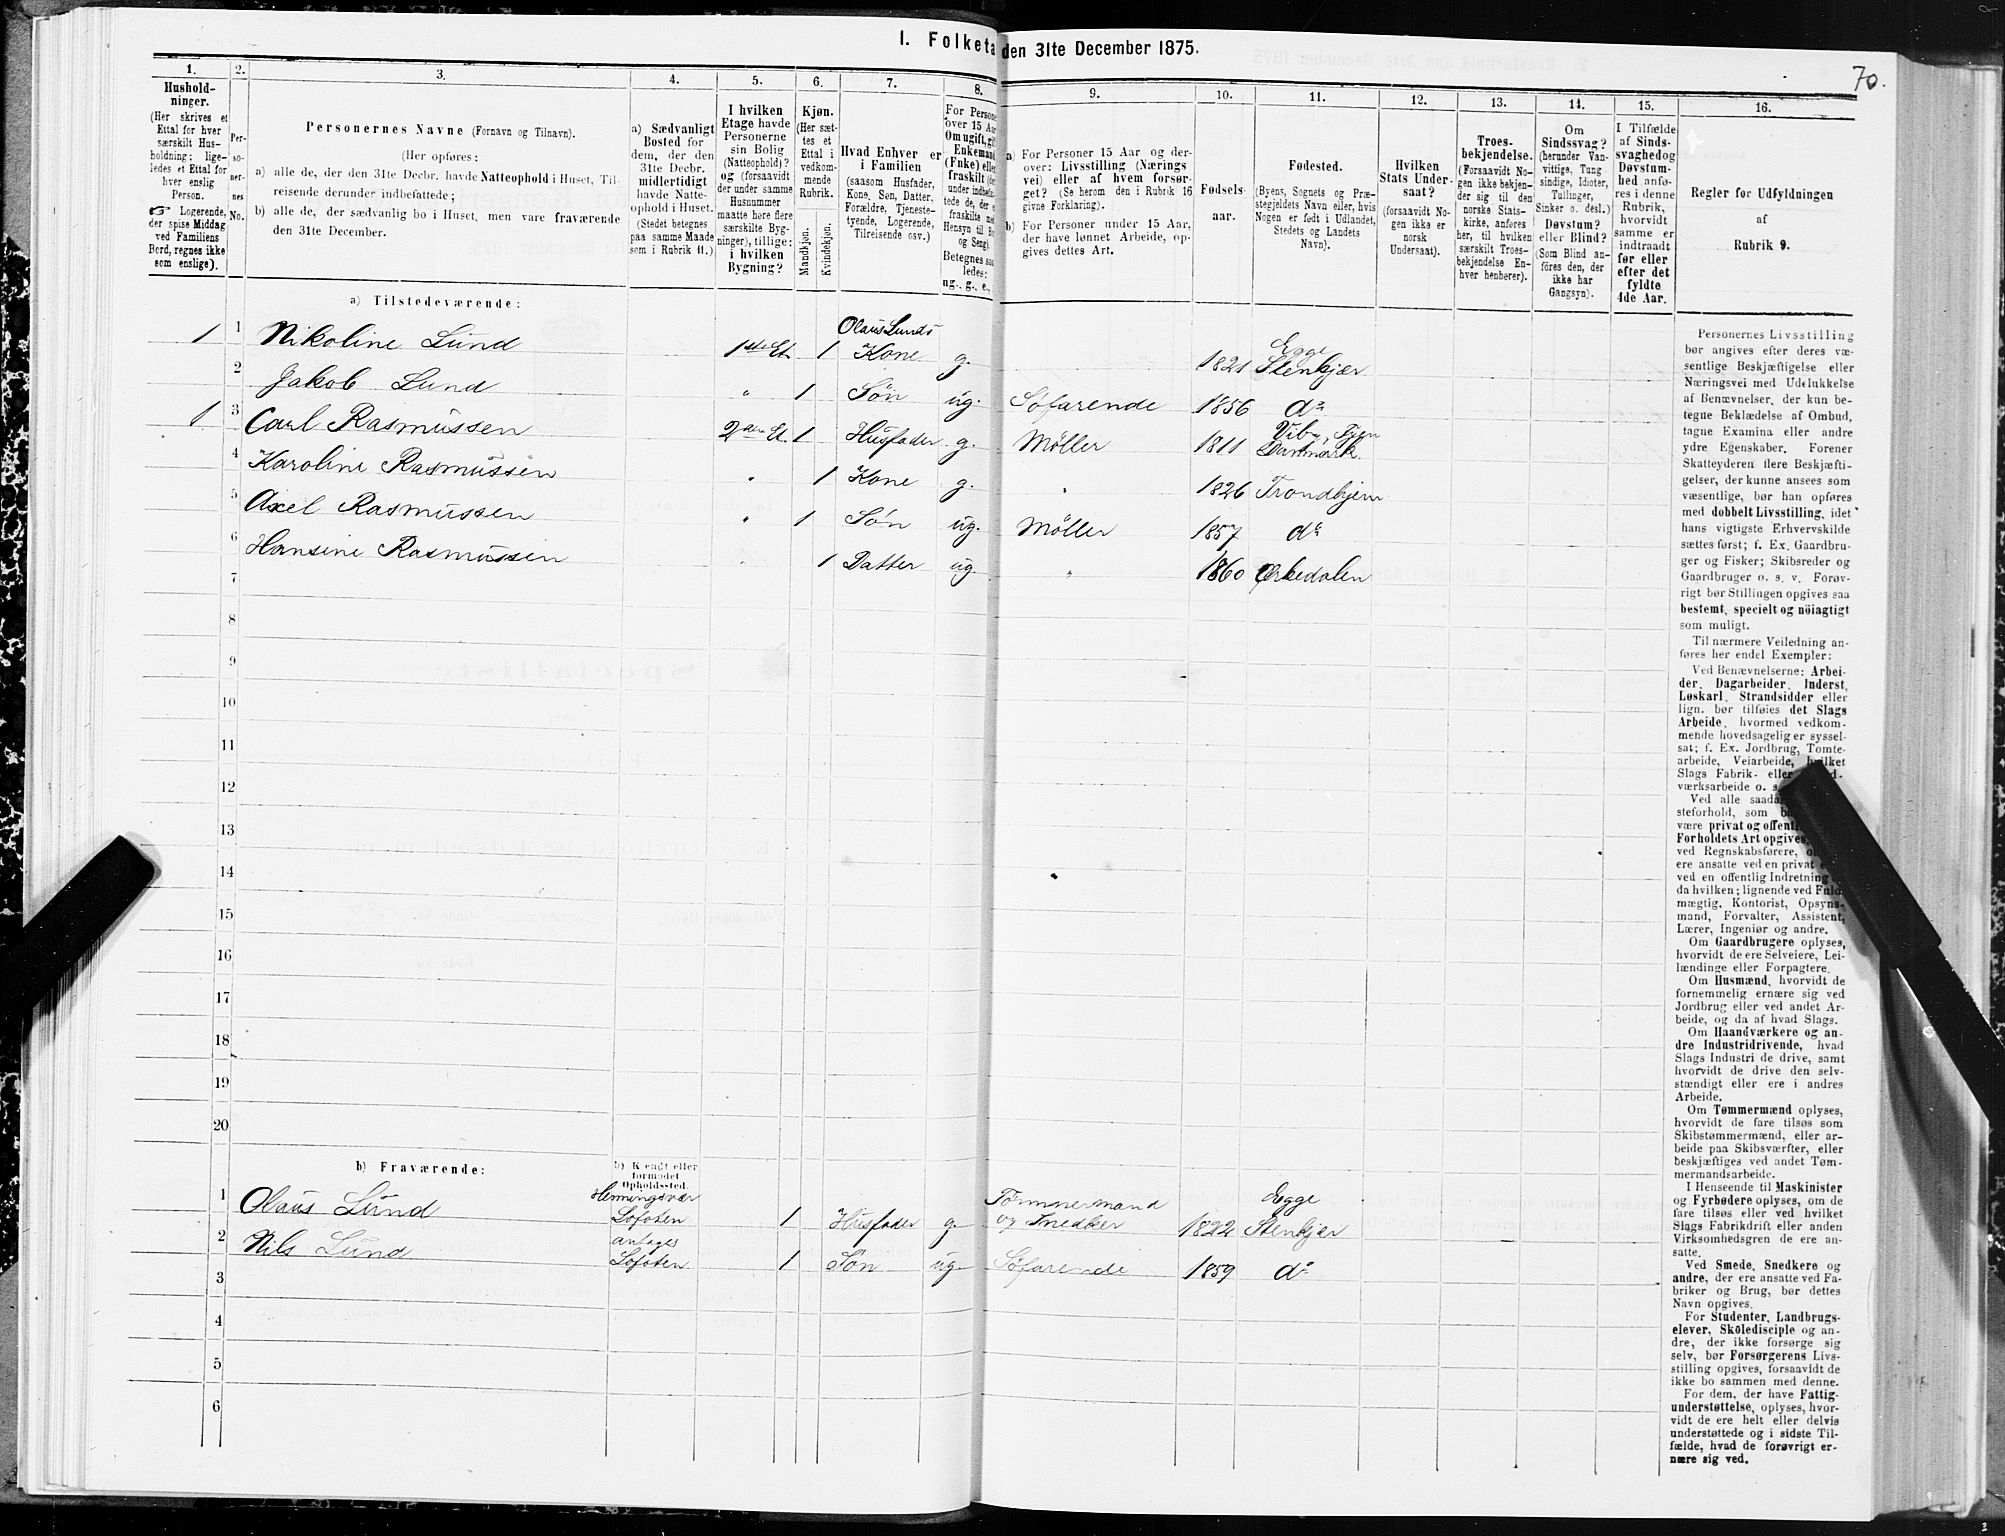 I. Folketa den 31te December 1875.
70.
1.
Hushold-
ninger.
(Her skrives et
Ettal for hver
særskilt Hus-
holdning; lige-
ledes et Ettal for
hver enslig
Person.
☞ Logerende,
der spise Middag
ved Familiens
Bord, regnes ikke
som enslige).
2.
Per-
so-
ner-
nes
No.
3.
Personernes Navne (Fornavn og Tilnavn).
(Her opføres:
a) alle de, der den 31te Decbr. havde Natteophold i Huset, Til-
reisende derunder indbefattede;
b) alle de, der sædvanlig bo i Huset, men vare fraværende
den 31te December.
4.
a) Sædvanligt
Bosted for
dem, der den
31te Decbr.
midlertidigt
havde Natte-
ophold i Huset.
(Stedet betegnes
paa samme Maade
som i Rubrik 11.)
5.
I hvilken
Etage havde
Personerne
sin Bolig
(Natteophold)?
og (forsaavidt
der under samme
Husnummer
maatte høre flere
særskilte Byg-
ninger), tillige:
i hvilken
Bygning?
6.
Kjøn.
(Her sæt-
tes et
Ettal i
vedkom-
mende
Rubrik.
Mandkjøn.
Kvindekjøn.
7.
Hvad Enhver er
i Familien
(saasom Husfader,
Kone, Søn, Datter,
Forældre, Tjeneste-
tyende, Logerende,
Tilreisende osv.)
8.
For Persone
over 15 Aar
Om ugift, gif
Enkemand
(Enke) elle
fraskilt (de
under infødte
tede de, der e
fraskilte med
Hensyn til Bo
og Seng).
Betegnes saa
ledes:
ug., g., e.,
9.
a) For Personer 15 Aar og der-
over: Livsstilling (Nærings
vei) eller af hvem forsør-
get? (Se herom den i Rubrik 16
givne Forklaring).
b) For Personer under 15 Aar,
der have lønnet Arbeide, op-
gives dettes Art.
10.
Fødsels-
aar.
11.
Fødested.
(Byens, Sognets og Præ-
stegjeldets Navn eller, hvis
Nogen er født i Udlandet,
Stedets og Landets
Navn).
12.
Hvilken
Stats Under-
saat?
(forsaavidt No-
gen ikke er
norsk
Undersaat).
13.
Troes-
bekjendelse.
(Forsaavidt No-
gen ikke bekjen-
der sig til den
norske Stats-
kirke, anføres
her, til hvilken
særskilt Troes-
bekjendelse En-
hver henhører).
14.
Om
Sindssvag?
(herunder Van-
vittige, Tung
sindige, Idioter,
Tullinger,
Sinker o. desl.)
Døvstum?
eller Blind?
(Som Blind an-
føres den, der
ikke har
Gangsyn).
15.
I Tilfælde
af Sinds-
svaghed og
Døvstum-
hed anfø-
res i denne
Rubrik,
hvorvidt
samme er
indtraadt
før eller
efter det
fyldte
4de Aar.
16.
Regler for Udfyldningen
af
Rubrik 9.
a) Tilstedeværende:
Olaus Lunds
1 1 Nikoline Lund 1ste Et. 1 Kone g. 1821 Egge Stenkjær
2 Jakob Lund " 1 Søn ug. Søfarende 1856 do
1 3 Carl Rasmussen 2den Et. 1 Husfader g. Møller 1811 Viby, Fyen Danmark.
4 Karoline Rasmussen " 1 Kone g. " 1826 Trondhjem
5 Axel Rasmussen " 1 Søn ug. Møller 1857 do
6 Hansine Rasmussen " 1 Datter ug. " 1860 Orkedalen
7
8
9
10
11
12
13
14
15
16
17
18
19
20
b) Fraværende:
b) Kjendt eller
formodet
Opholdssted.
1 Olaus Lund Henningsvær Lofoten 1 Husfader g. Tømmermand og Snedker 1822 Egge Stenkjær
2 Nils Lund antages Lofoten 1 Søn ug. Søfarende 1859 do
3
4
5
6
Personernes Livsstilling
bør angives efter deres væ-
sentlige Beskjæftigelse eller
Næringsvei med Udelukkelse
af Benævnelser, der kun be-
tegne Beklædelse af Ombud,
tagne Examina eller andre
ydre Egenskaber. Forener
Skatteyderen flere Beskjæfti-
gelser, der kunne ansees som
væsentlige, bør han opføres
med dobbelt Livsstilling, idet
hans vigtigste Erhvervskilde
sættes først; f. Ex. Gaardbru-
ger og Fisker; Skibsreder og
Gaardbruger o. s. v. Forøv-
rigt bør Stillingen opgives saa
bestemt, specielt og nöiagtigt
som muligt.
Til nærmere Veiledning an-
føres her endel Exempler:
Ved Benævnelserne: Arbei-
der, Dagarbeider, Inderst,
Løskarl, Strandsidder eller
lign. bør tilføies det Slags
Arbeide, hvormed vedkom-
mende hovedsagelig er syssel-
sat; f. Ex. Jordbrug, Tomte-
arbeide, Veiarbeide, hvilket
Slags Fabrik- eller
værksarbeide o. s.
Ved alle saada
steforhold, som
være privat og offent
Forholdets Art opgives,
ved Regnskabsførere,
ere ansatte ved en privat
ved en offentlig Indretning
da hvilken; lignende ved Fuld-
mægtig, Kontorist, Opsyns-
mand, Forvalter, Assistent,
Lærer, Ingeniør og andre.
Om Gaardbrugere oplyses,
hvorvidt de ere Selveiere, Lei-
lændinge eller Forpagtere.
Om Husmænd, hvorvidt de
fornemmelig ernære sig ved
Jordbrug eller ved andet Ar-
beide, og da af hvad Slags.
Om Haandværkere og an-
dre Industridrivende, hvad
Slags Industri de drive, samt
hvorvidt de drive den selv-
stændigt eller ere i andres
Arbeide.
Om Tømmermænd oplyses,
hvorvidt de fare tilsøs som
Skibstømmermænd, eller ar-
beide paa Skibsværfter, eller
beskjæftiges ved andet Tøm-
mermandsarbeide.
I Henseende til Maskinister
og Fyrbødere oplyses, om de
fare tilsøs eller ved hvilket
Slags Fabrikdrift eller anden
Virksomhedsgren de ere an-
satte.
Ved Smede, Snedkere og
andre, der ere ansatte ved Fa-
briker og Brug, bør dettes
Navn opgives.
For Studenter, Landbrugs-
elever, Skoledisciple og an-
dre, der ikke forsørge sig
selv, bør Forsørgerens Livs-
stilling opgives, forsaavidt de
ikke bo sammen med denne.
For dem, der have Fattig-
understøttelse, oplyses, hvor-
vidt de ere helt eller delvis
understøttede og i sidste Til-
fælde, hvad de forøvrigt er-
nære sig ved.